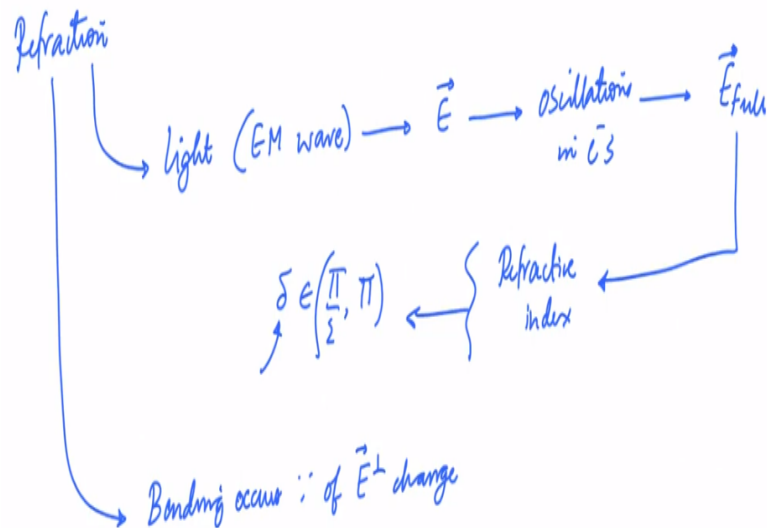 Refraction
Light (EM wave) → E⃗ → oscillations → E⃗full
in e⁻s
δ ∈ (π/2, π) ← { Refractive
index
Bending occurs ∵ of E⃗⊥ change